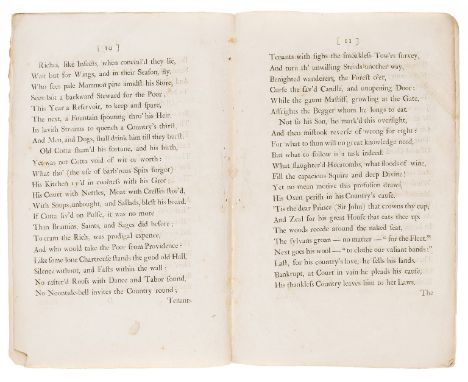 [ 10 ]
Riches, like Insects, when conceal'd they lie,
Wait but for Wings, and in their Season, fly.
Who sees pale Mammon pine amidst his Store,
Sees but a backward Steward for the Poor;
This Year a Reservoir, to keep and spare,
The next, a Fountain spouting thro' his Heir,
In lavish Streams to quench a Country's thirst,
And Men, and Dogs, shall drink him till they burst.
Old Cotta sham'd his fortune, and his birth,
Yet was not Cotta void of wit or worth:
What tho' (the use of barb'rous Spits forgot)
His Kitchen vy'd in coolness with his Grot;
His Court with Nettles, Moat with Cresses stor'd,
With Soups unbought, and Sallads, blest his board.
If Cotta liv'd on Pulse, it was no more
Than Bramins, Saints, and Sages did before;
To cram the Rich, was prodigal expence,
And who would take the Poor from Providence?
Like some lone Chartreuse stands the good old Hall,
Silence without, and Fasts within the wall;
No rafter'd Roofs with Dance and Tabor sound,
No Noontide-bell invites the Country round;
Tenants
[ 11 ]
Tenants with sighs the smoakless Tow'rs survey,
And turn th' unwilling Steeds another way,
Benighted wanderers, the Forest o'er,
Curse the sav'd Candle, and unopening Door;
While the gaunt Mastiff, growling at the Gate,
Affrights the Beggar whom he longs to eat.
Not so his Son, he mark'd this oversight,
And then mistook reverse of wrong for right:
For what to shun will no great knowledge need,
But what to follow is a task indeed.
What slaughter'd Hecatombs, what floods of wine,
Fill the capacious Squire and deep Divine!
Yet no mean motive this profusion draws,
His Oxen perish in his Country's cause;
'Tis the dear Prince (Sir John) that crowns thy cup,
And Zeal for his great House that eats thee up.
The woods recede around the naked seat,
The sylvans groan — no matter — "for the Fleet."
Next goes his wool — "to clothe our valiant bands"
Last, for his country's love, he sells his lands.
Bankrupt, at Court in vain he pleads his cause,
His thankless Country leaves him to her Laws.
The